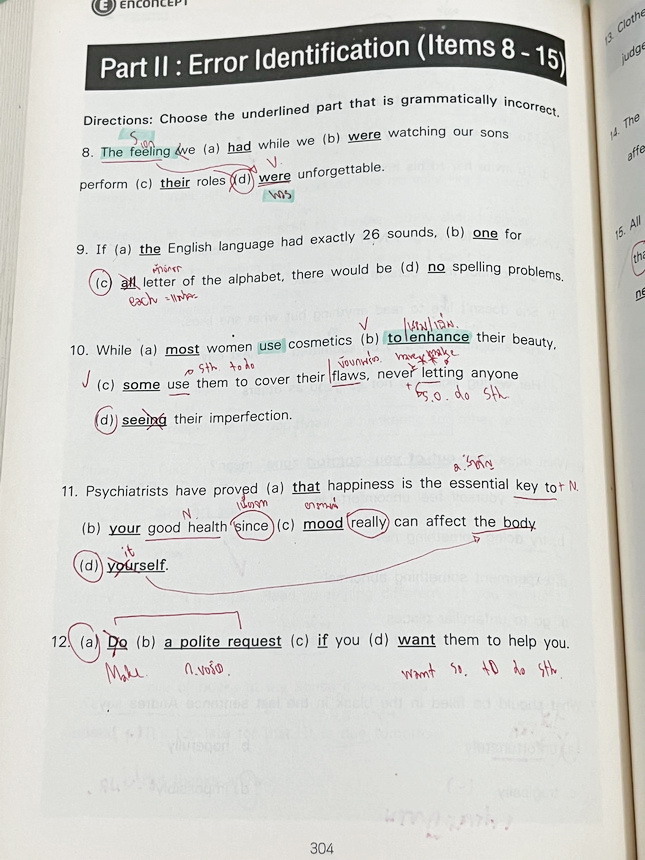 E ENCONCEPT
Part II : Error Identification (Items 8 - 15)
Directions: Choose the underlined part that is grammatically incorrect.
8. The feeling we (a) had while we (b) were watching our sons
V.
perform (c) their roles (d) were unforgettable.
was
9. If (a) the English language had exactly 26 sounds, (b) one for
(c) all letter of the alphabet, there would be (d) no spelling problems.
each
V
10. While (a) most women use cosmetics (b) to enhance their beauty,
sth. to do
(c) some use them to cover their flaws, never letting anyone
s.o. do sth
(d) seeing their imperfection.
11. Psychiatrists have proved (a) that happiness is the essential key to + N.
N.
(b) your good health since (c) mood really can affect the body
it
(d) yourself.
12. (a) Do (b) a polite request (c) if you (d) want them to help you.
Make
want so. to do sth.
304
13. Clothe
judge
14. The
affe
15. All
tha
ne